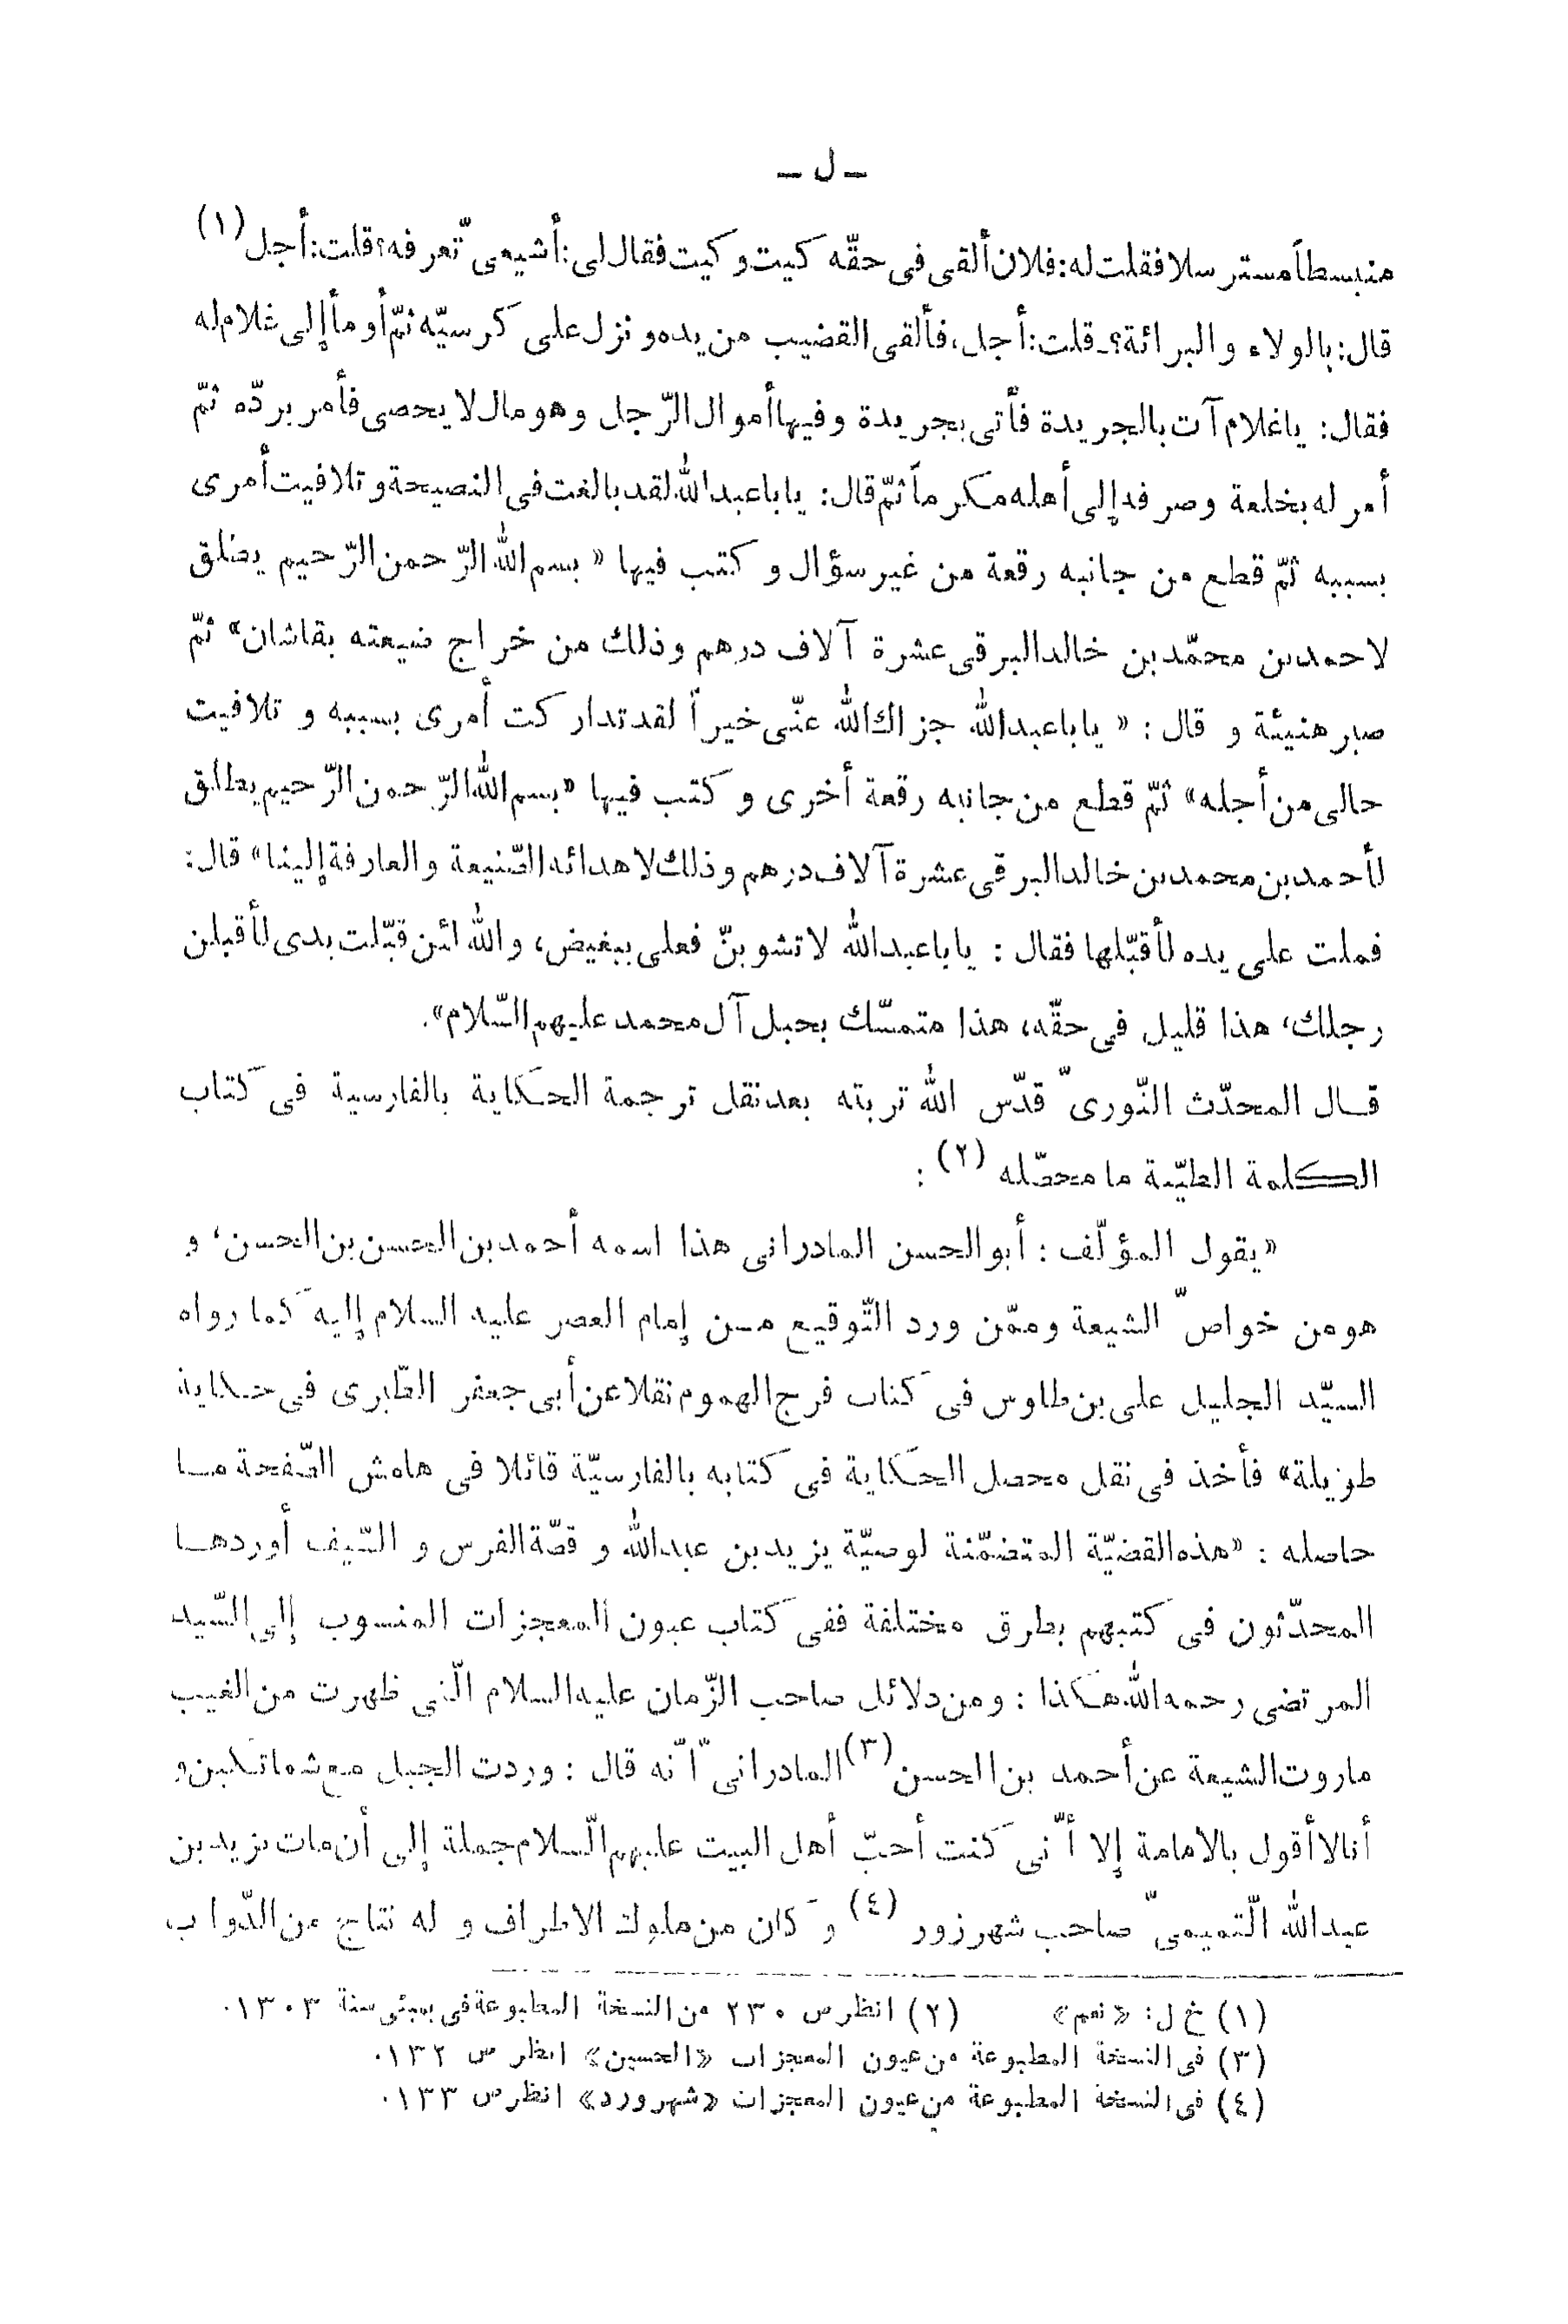 ـ ل ـ
منبسطاً مسترسلا فقلت له: فلان ألقى فى حقّه كيت و كيت فقال لى: أشيعىّ تعرفه؟ قلت: أجل (١)
قال: بالولاء و البرائة؟ـ قلت: أجل، فألقى القضيب من يده و نزل على كرسيّه ثمّ أومأ إلى غلام له
فقال: يا غلام آت بالجريدة فأتى بجريدة و فيها أموال الرّجل و هو مال لا يحصى فأمر بردّه ثمّ
أمر له بخلعة و صرفه إلى أهله مكرماً ثمّ قال: يا با عبدالله لقد بالغت فى النصيحة و تلافيت أمرى
بسببه ثمّ قطع من جانبه رقعة من غير سؤال و كتب فيها « بسم الله الرّحمن الرّحيم يطلق
لاحمد بن محمّد بن خالد البرقى عشرة آلاف درهم و ذلك من خراج ضيعته بقاشان» ثمّ
صبر هنيئة و قال : « يا با عبدالله جزاك الله عنّى خيراً لقد تداركت أمرى بسببه و تلافيت
حالى من أجله» ثمّ قطع من جانبه رقعة أخرى و كتب فيها «بسم الله الرّحمن الرّحيم يطلق
لأحمد بن محمد بن خالد البرقى عشرة آلاف درهم و ذلك لاهدائه الصّنيعة و العارفة إلينا» قال:
فملت على يده لأقبّلها فقال : يا با عبدالله لا تشوبنّ فعلى ببغيض، و الله لئن قبّلت يدى لأقبلن
رجلك، هذا قليل فى حقّه، هذا متمسّك بحبل آل محمد عليهم السّلام».
قــال المحدّث النّورىّ قدّس الله تربته بعد نقل ترجمة الحكاية بالفارسية فى كتاب
الكلمة الطيّبة ما محصّله (٢) :
«يقول المؤلّف : أبو الحسن المادرانى هذا اسمه أحمد بن الحسن بن الحسن، و
هو من خواصّ الشيعة و ممّن ورد التّوقيع مــن إمام العصر عليه السلام إليه كما رواه
السيّد الجليل على بن طاوس فى كتاب فرج الهموم نقلا عن أبى جعفر الطّبرى فى حكاية
طويلة» فأخذ فى نقل محصل الحكاية فى كتابه بالفارسيّة قائلا فى هامش الصّفحة مــا
حاصله : «هذه القضيّة المتضمّنة لوصيّة يزيد بن عبدالله و قصّة الفرس و السّيف أوردهــا
المحدّثون فى كتبهم بطرق مختلفة ففى كتاب عيون المعجزات المنسوب إلى السّيد
المرتضى رحمه الله هكذا : و من دلائل صاحب الزّمان عليه السلام الّتى ظهرت من الغيب
ما روت الشيعة عن أحمد بن الحسن (٣) المادرانىّ انّه قال : وردت الجبل مع شماتكين و
أنا لا أقول بالامامة إلا أنّى كنت أحبّ أهل البيت عليهم السّلام جملة إلى أن مات يزيد بن
عبدالله التّميمىّ صاحب شهرزور (٤) و كان من ملوك الاطراف و له نتاج من الدّواب
(١) خ ل: «نعم» (٢) انظر ص ٢٣٠ من النسخة المطبوعة فى بمبئى سنة ١٣٠٣.
(٣) فى النسخة المطبوعة من عيون المعجزات «الحسين» انظر ص ١٣٢.
(٤) فى النسخة المطبوعة من عيون المعجزات «شهرورد» انظر ص ١٣٣.